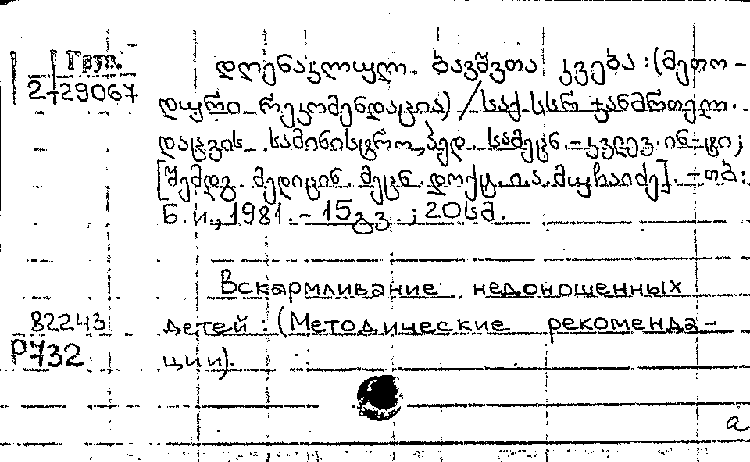 Груз.
2-29067
დღენაკლულ ბავშვთა კვება : (მეთო-
დური რეკომენდაცია) / საქ.სსრ ჯანმრთელ.
დაცვის სამინისტრო, პედ. სამეცნ.-კვლევ. ინ-ტი;
[შემდგ. მედიცინ. მეცნ. დოქტ. ი.ა.
- თბ.:
ბ.ი., 1981. - 15გვ. ; 20სმ.
Вскармливание недоношенных
82243 детей : (Методические рекоменда-
P732 ции).
a